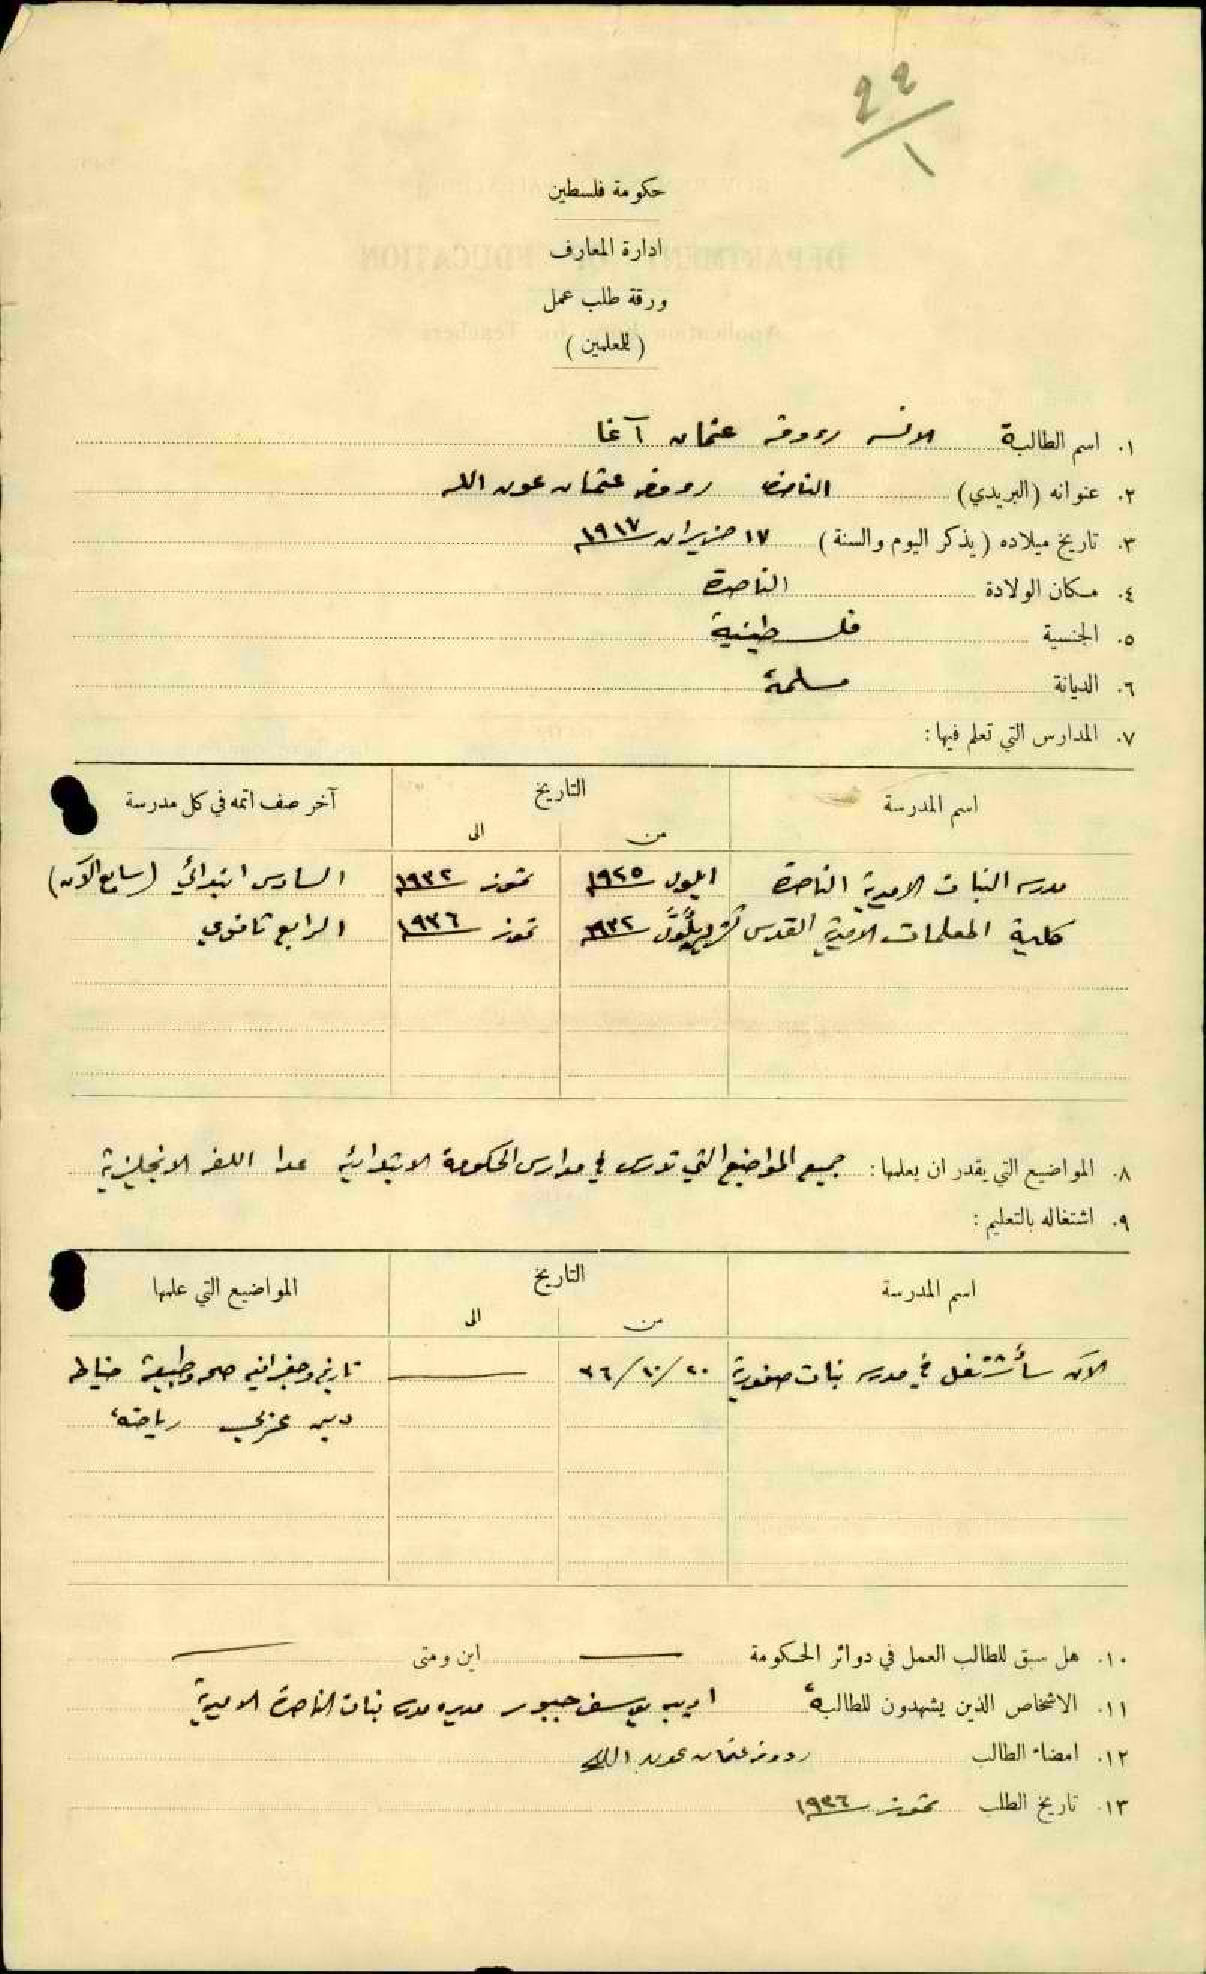 22
١
حكومة فلسطين
ادارة المعارف
ورقة طلب عمل
( للمعلمين )
١. اسم الطالبة الانسه رءوفه عثمان آغا
٢. عنوانه (البريدي) الناصره رءوفه عثمان عون الله
٣. تاريخ ميلاده ( يذكر اليوم والسنة ) ١٧ حزيران ١٩١٧
٤. مكان الولادة الناصرة
٥. الجنسية فلسطينية
٦. الديانة مسلمة
٧. المدارس التي تعلم فيها :
اسم المدرسة التاريخ آخر صف اتمه في كل مدرسة
من الى
مدرسه البنات الاميرية الناصرة ايلول ١٩٢٥ تموز ١٩٣٢ السادس ابتدائي (سابع الآن)
كلية المعلمات الاميرية القدس ١٩٣٢ تموز ١٩٣٦ الرابع ثانوي
٨. المواضيع التي يقدر ان يعلمها : جميع المواضيع التي تدرس في مدارس الحكومة الابتدائيه عدا اللغه الانجليزية
٩. اشتغاله بالتعليم :
اسم المدرسة التاريخ المواضيع التي علمها
من الى
الآن سأشتغل في مدرسه بنات صفورية ٢٠/١٠/٣٦ تاريخ وجغرافيه صحه وطبيعة خياطه
دين عربي رياضة
١٠. هل سبق للطالب العمل في دوائر الحكومة اين ومتى
١١. الاشخاص الذين يشهدون للطالبة اديبه يوسف جبور مديره مدرسه بنات الناصرة الاميرية
١٢. امضاء الطالب رءوفه عثمان عون الله
١٣. تاريخ الطلب تموز ١٩٣٦